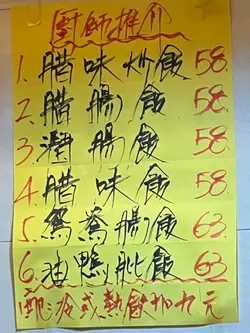 廚師推介
1. 腊味炒飯 58.
2. 腊腸飯 58.
3. 潤腸飯 58.
4. 腊味飯 58.
5. 鴛鴦腸飯 63.
6. 油鴨髀飯 63.
配冷或熱飲加九元